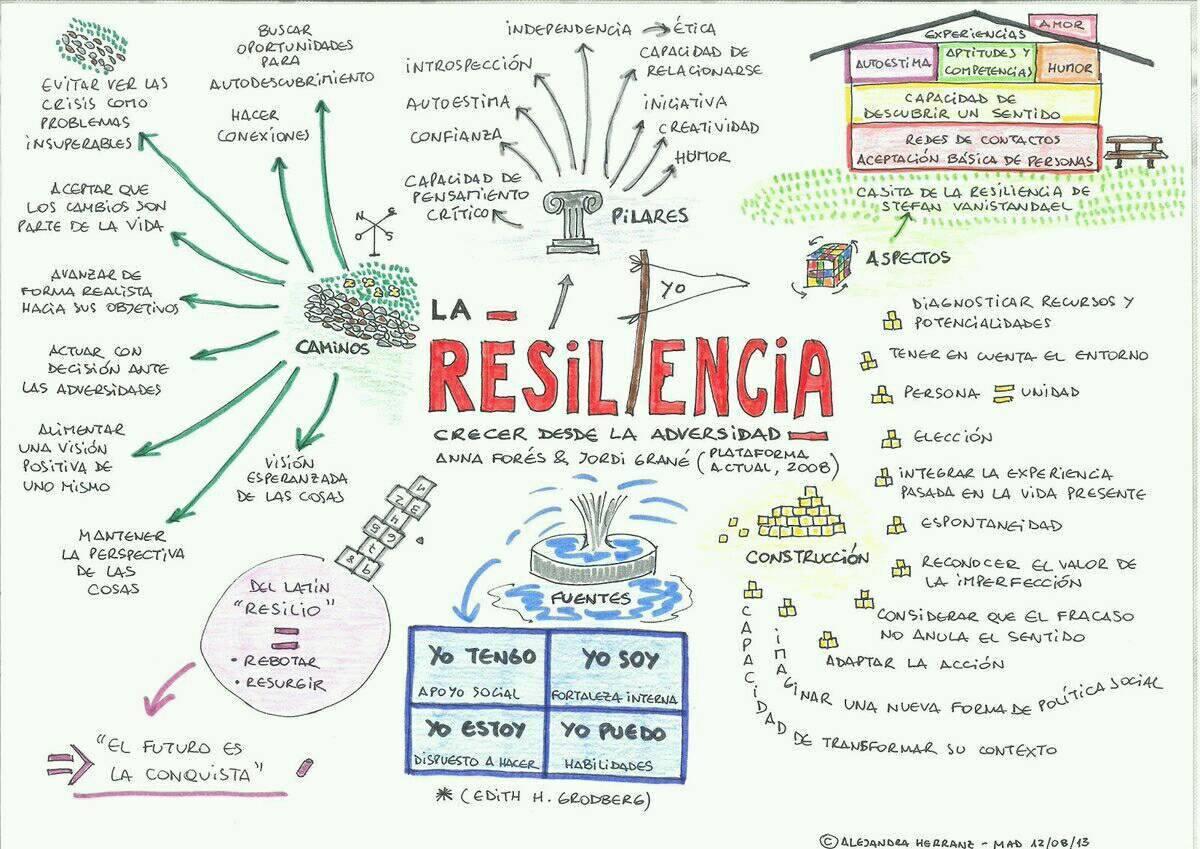 LA
RESILIENCIA
YO
CRECER DESDE LA ADVERSIDAD
ANNA FORÉS & JORDI GRANÉ (PLATAFORMA
ACTUAL, 2008)
CAMINOS
N
S
EVITAR VER LAS
CRISIS COMO
PROBLEMAS
INSUPERABLES
BUSCAR
OPORTUNIDADES
PARA
AUTODESCUBRIMIENTO
HACER
CONEXIONES
ACEPTAR QUE
LOS CAMBIOS SON
PARTE DE LA VIDA
AVANZAR DE
FORMA REALISTA
HACIA SUS OBJETIVOS
ACTUAR CON
DECISIÓN ANTE
LAS ADVERSIDADES
ALIMENTAR
UNA VISIÓN
POSITIVA DE
UNO MISMO
VISIÓN
ESPERANZADA
DE LAS COSAS
MANTENER
LA PERSPECTIVA
DE LAS
COSAS
PILARES
INDEPENDENCIA → ÉTICA
INTROSPECCIÓN
CAPACIDAD DE
RELACIONARSE
AUTOESTIMA
INICIATIVA
CONFIANZA
CREATIVIDAD
HUMOR
CAPACIDAD DE
PENSAMIENTO
CRÍTICO
AMOR
EXPERIENCIAS
AUTOESTIMA
APTITUDES Y
COMPETENCIAS
HUMOR
CAPACIDAD DE
DESCUBRIR UN SENTIDO
REDES DE CONTACTOS
ACEPTACIÓN BÁSICA DE PERSONAS
CASITA DE LA RESILIENCIA DE
STEFAN VANISTANDAEL
ASPECTOS
DIAGNOSTICAR RECURSOS Y
POTENCIALIDADES
TENER EN CUENTA EL ENTORNO
PERSONA = UNIDAD
ELECCIÓN
INTEGRAR LA EXPERIENCIA
PASADA EN LA VIDA PRESENTE
ESPONTANEIDAD
RECONOCER EL VALOR DE
LA IMPERFECCIÓN
CONSIDERAR QUE EL FRACASO
NO ANULA EL SENTIDO
ADAPTAR LA ACCIÓN
IMAGINAR UNA NUEVA FORMA DE POLÍTICA SOCIAL
CAPACIDAD DE TRANSFORMAR SU CONTEXTO
CONSTRUCCIÓN
FUENTES
YO TENGO
APOYO SOCIAL
YO SOY
FORTALEZA INTERNA
YO ESTOY
DISPUESTO A HACER
YO PUEDO
HABILIDADES
* (EDITH H. GRODBERG)
1
2 3
4
5 6
7
8 9
DEL LATÍN
"RESILIO"
=
• REBOTAR
• RESURGIR
"EL FUTURO ES
LA CONQUISTA"
© ALEJANDRA HERRANZ - MAD 12/08/13